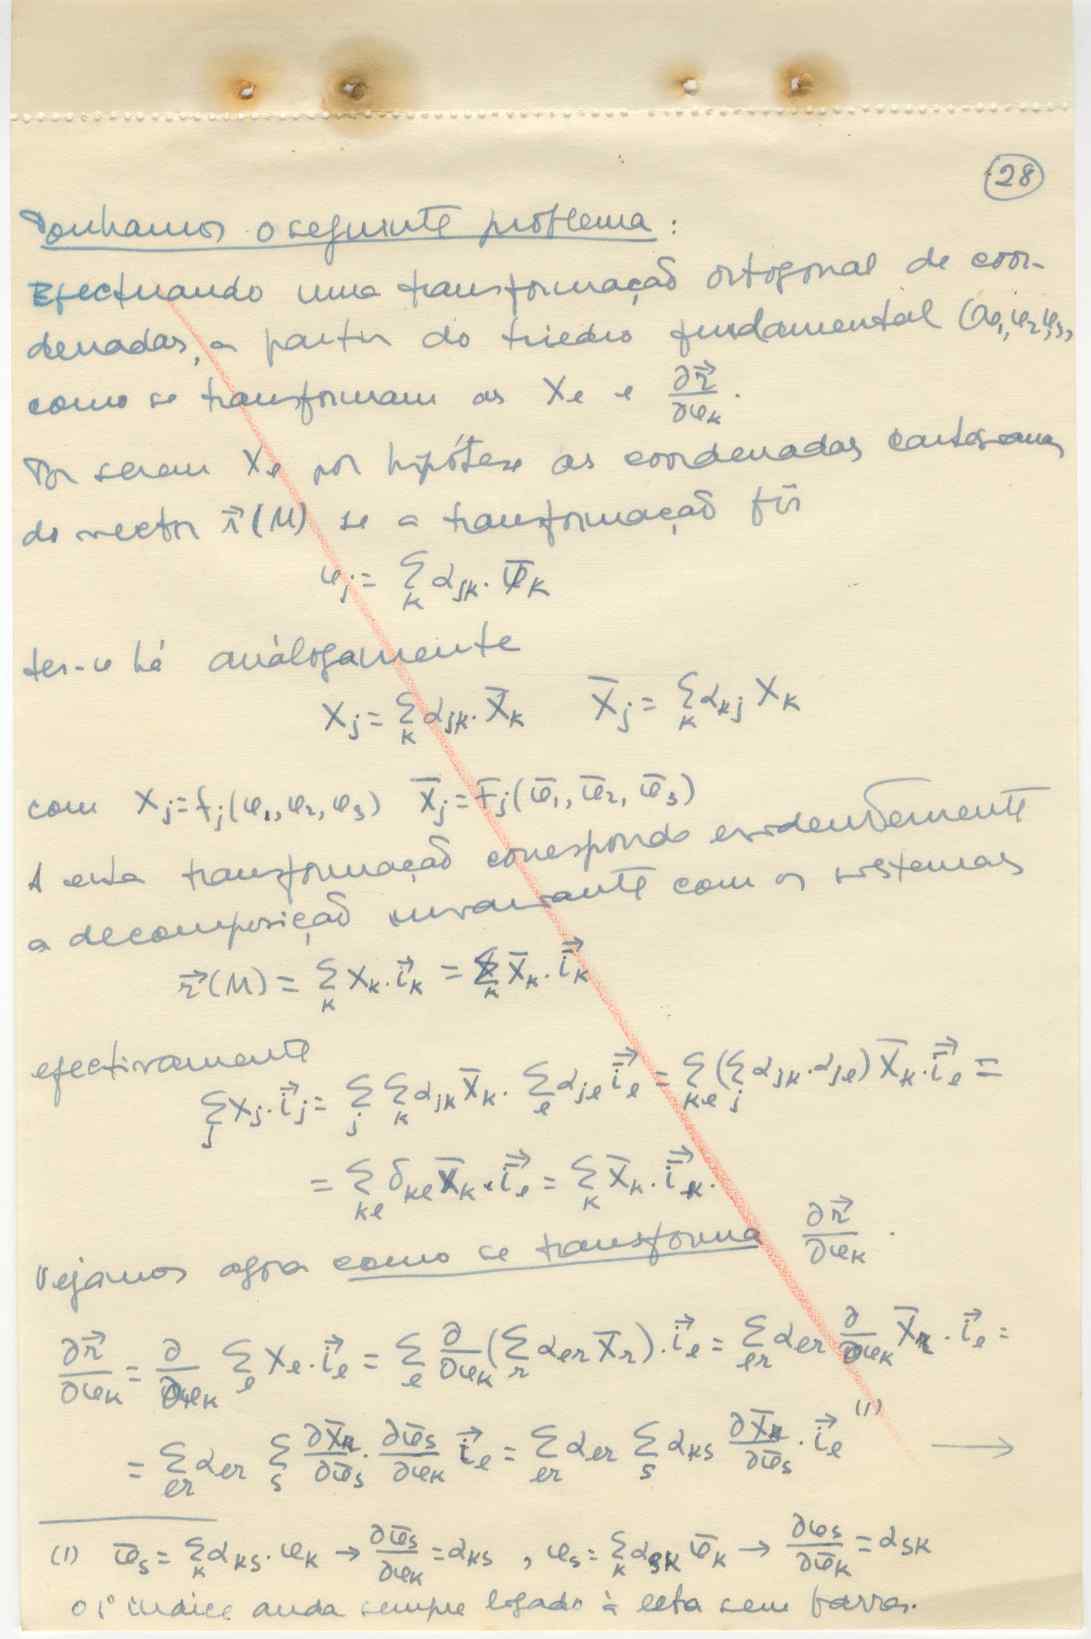 28
Ponhamos o seguinte problema:
Efectuando uma transformação ortogonal de coor-
denadas, a partir do triedro fundamental (a₀, φ₁, φ₂, φ₃),
como se transformam as Xₑ e ∂r⃗/∂φₖ.
Por serem Xₑ por hipótese as coordenadas cartesianas
do vector r⃗(M) se a transformação fôr
φⱼ = Σₖ αⱼₖ. φ̄ₖ
ter-se há anàlogamente
Xⱼ = Σₖ αⱼₖ. X̄ₖ X̄ⱼ = Σₖ αₖⱼ Xₖ
com Xⱼ = fⱼ(φ₁, φ₂, φ₃) X̄ⱼ = F̄ⱼ(φ̄₁, φ̄₂, φ̄₃)
A esta transformação corresponde evidentemente
a decomposição invariante com os sistemas
r⃗(M) = Σₖ Xₖ. i⃗ₖ = Σₖ X̄ₖ. ī⃗ₖ
efectivamente
Σⱼ Xⱼ. i⃗ⱼ = Σⱼ Σₖ αⱼₖ X̄ₖ. Σₑ αⱼₑ ī⃗ₑ = Σₖₑ (Σⱼ αⱼₖ. αⱼₑ) X̄ₖ. ī⃗ₑ =
= Σₖₑ δₖₑ X̄ₖ. ī⃗ₑ = Σₖ X̄ₖ. ī⃗ₖ.
Vejamos agora como se transforma ∂r⃗/∂φₖ.
∂r⃗/∂φₖ = ∂/∂φₖ Σₑ Xₑ. i⃗ₑ = Σₑ ∂/∂φₖ (Σᵣ αₑᵣ X̄ᵣ). i⃗ₑ = Σₑᵣ αₑᵣ ∂/∂φₖ X̄ᵣ. i⃗ₑ =
= Σₑᵣ αₑᵣ Σₛ ∂X̄ᵣ/∂φ̄ₛ. ∂φ̄ₛ/∂φₖ i⃗ₑ = Σₑᵣ αₑᵣ Σₛ αₖₛ ∂X̄ᵣ/∂φ̄ₛ. i⃗ₑ (1) →
(1) φ̄ₛ = Σₖ αₖₛ. φₖ → ∂φ̄ₛ/∂φₖ = αₖₛ, φₛ = Σₖ αₛₖ φ̄ₖ → ∂φₛ/∂φ̄ₖ = αₛₖ
O 1º índice anda sempre ligado à letra sem barra.